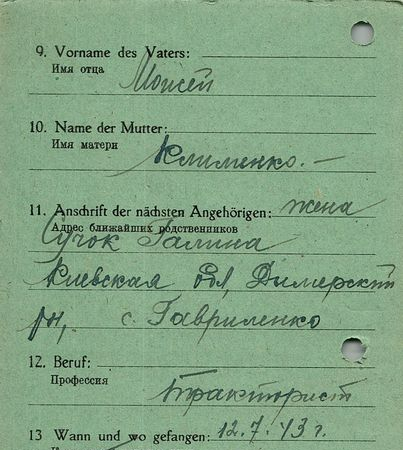 9. Vorname des Vaters:
Имя отца
Моисей
10. Name der Mutter:
Имя матери
Клименко. –
11. Anschrift der nächsten Angehörigen: жена
Адрес ближайших родственников
Сучок Галина
Киевская обл, Дымерский
рн, с. Гавриленко
12. Beruf:
Профессия
тракторист
13 Wann und wo gefangen: 12.7.43 г.